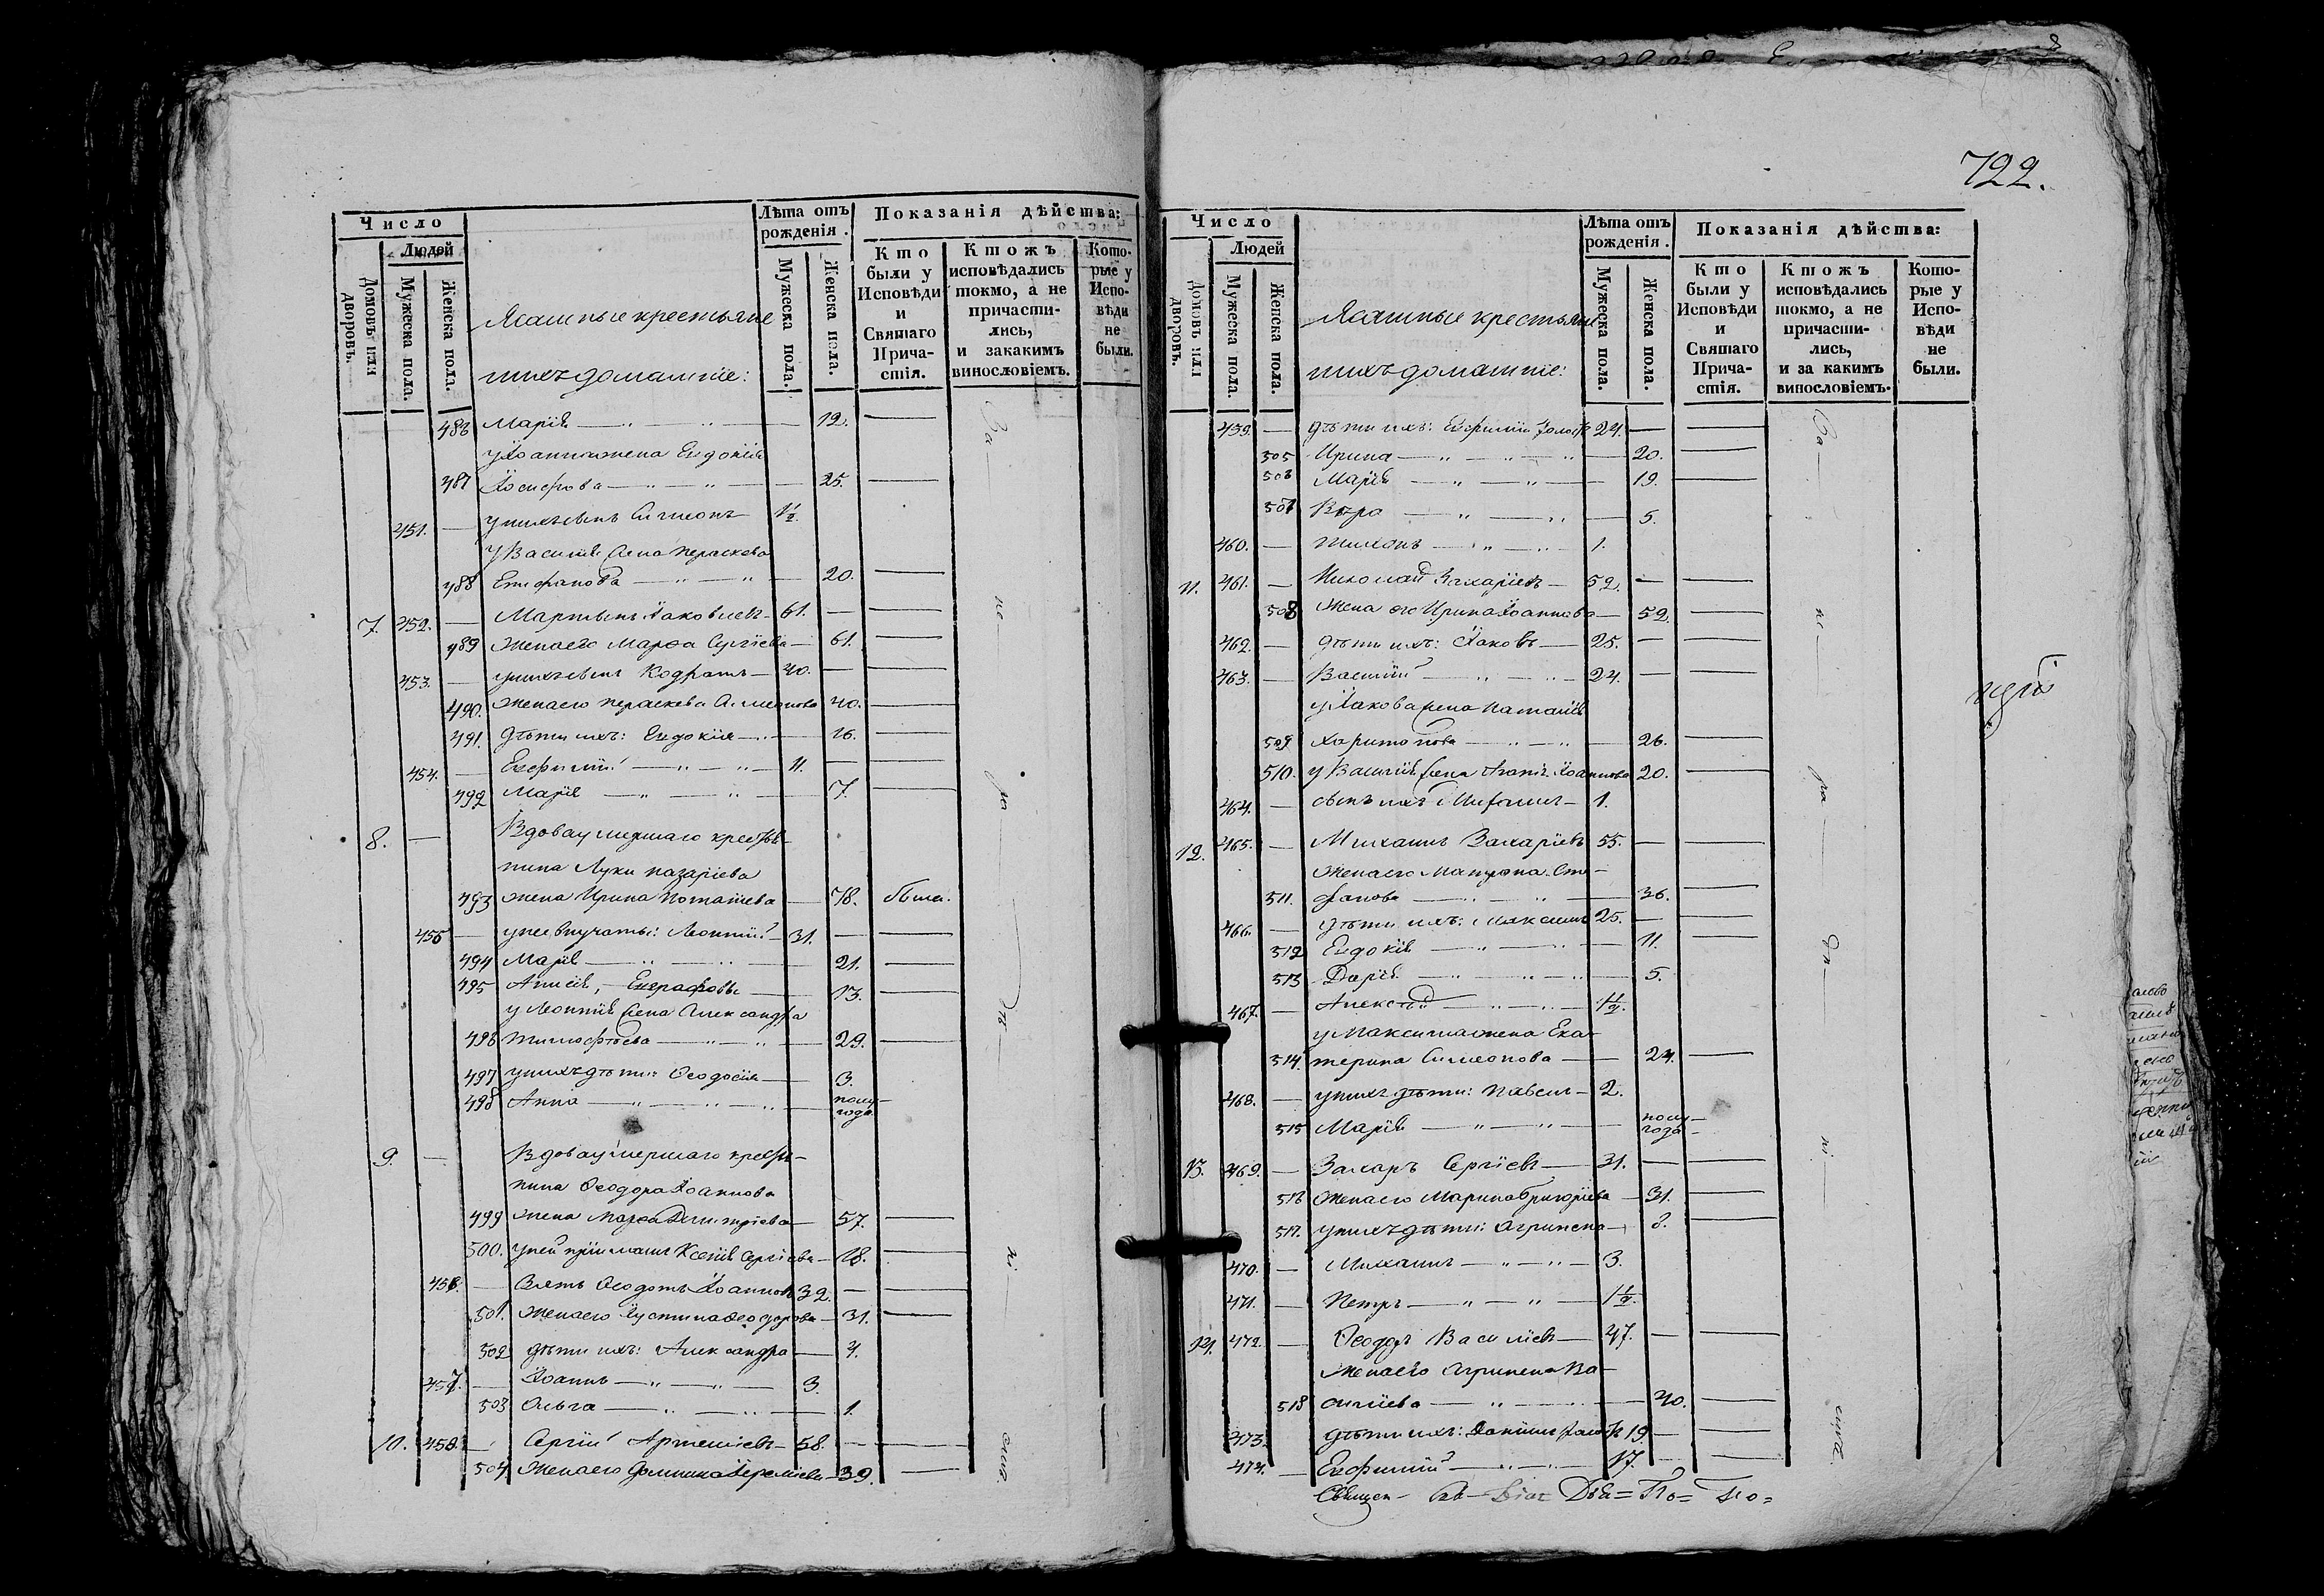 Число
Людей
Домовъ или дворовъ.
Мужеска пола.
Женска пола.
Ясашные крестьяне
и ихъ домашніе:
Лѣта отъ рожденія.
Мужеска пола.
Женска пола.
Показанія дѣйства:
Кто были у Исповѣди и Святаго Причастія.
Ктожъ исповѣдались токмо, а не причастились, и закакимъ винословіемъ.
Которые у Исповѣди не были.
486 Марія — „ — „ — 12.
у Іоанна жена Евдокія
487 Іосифова — „ — „ — 25.
451. — у нихъ сынъ Симеонъ — 1½
у Василія жена Параскева
488 Епифанова — „ — „ — 20.
7. 452. — Мартынъ Іаковлевъ — 61. —
489 Жена его Марѳа Сергіева — 61.
453. — у нихъ сынъ Кодратъ — 40. —
490. Жена его Параскева Симеонова 40.
491. Дѣти ихъ: Евдокія — „ — 16.
454. — Евфимій — „ — „ — 11. —
492 Марія — „ — „ — 7.
8. — Вдова умершаго крестья-
нина Луки Назаріева
493 жена Ирина Потапіева — 78. была.
455 — у нее внучаты: Леонтій — 31. —
494 Марія — „ — „ — 21.
495 Анисія, Евграфовы — 13.
у Леонтія жена Александра
496 Тимофѣева — „ — „ — 29.
497 у нихъ дѣти: Ѳеодосія — 3.
498 Анна — „ — „ — „ — полу-
года
9. — Вдова умершаго крестья-
нина Ѳеодора Іоаннова
499 жена Марѳа Димитріева — 57.
500. у ней пріимышъ Ксенія Сергіева — 18.
456. — Зять Ѳеодотъ Іоанновъ 32. —
501. Жена его Іустина Ѳеодорова — 31.
502 дѣти ихъ: Александра — 4.
457. — Іоаннъ — „ — „ — 3.
503 Ольга — „ — „ — 1.
10. 458. — Сергій Артеміевъ — 58. —
504 Жена его Домника Іереміева — 39.
За — не — ра — дѣ — ні — емъ
722.
Число
Людей
Домовъ или дворовъ.
Мужеска пола.
Женска пола.
Ясашные крестьяне
и ихъ домашніе:
Лѣта отъ рожденія.
Мужеска пола.
Женска пола.
Показанія дѣйства:
Кто были у Исповѣди и Святаго Причастія.
Ктожъ исповѣдались токмо, а не причастились, и за какимъ винословіемъ.
Которые у Исповѣди не были.
459. — дѣти ихъ: Евфимій холостъ 24. —
505 Ирина — „ — „ — „ — 20.
506 Марія — „ — „ — 19.
507 Вѣра — „ — „ — 5.
460. — Тихонъ — „ — „ — 1.
11. 461. — Николай Захаріевъ — 52. —
508 Жена его Ирина Іоаннова — 52.
462. — дѣти ихъ: Іаковъ — 25. —
463. — Василій — „ — „ — 24. —
у Іакова жена Наталія
509 Харитонова — „ — „ — 26.
510. у Василія жена Агапія Іоаннова 20.
464. — сынъ ихъ Мифодій — 1.
12. 465. — Михаилъ Захаріевъ 55. —
Жена его Матрона Сте-
511. фанова — „ — „ — 36.
466. — дѣти ихъ: Максимъ 25. —
512 Евдокія — „ — „ — 11.
513 Дарія — „ — „ — „ — 5.
467. — Алексій — „ — „ — 1½.
у Максима жена Ека-
514. терина Симеонова — 24.
468. — у нихъ дѣти: Павелъ — 2.
515 Марія — „ — „ — полу-
года
13. 469. — Захаръ Сергіевъ — 31. —
516 Жена его Марина Григоріева — 31.
517. у нихъ дѣти: Агрипена — 8.
470. — Михаилъ — „ — „ — 3.
471. — Петръ — „ — „ — 1½.
14. 472. — Ѳеодоръ Василіевъ — 47. —
Жена его Агрипена Ва-
518 силіева — „ — „ — 40.
473. дѣти ихъ: Даніилъ холостъ 19. —
474. — Евфимій — „ — „ — 17. —
За — не — ра — дѣ — ні — емъ.
церк